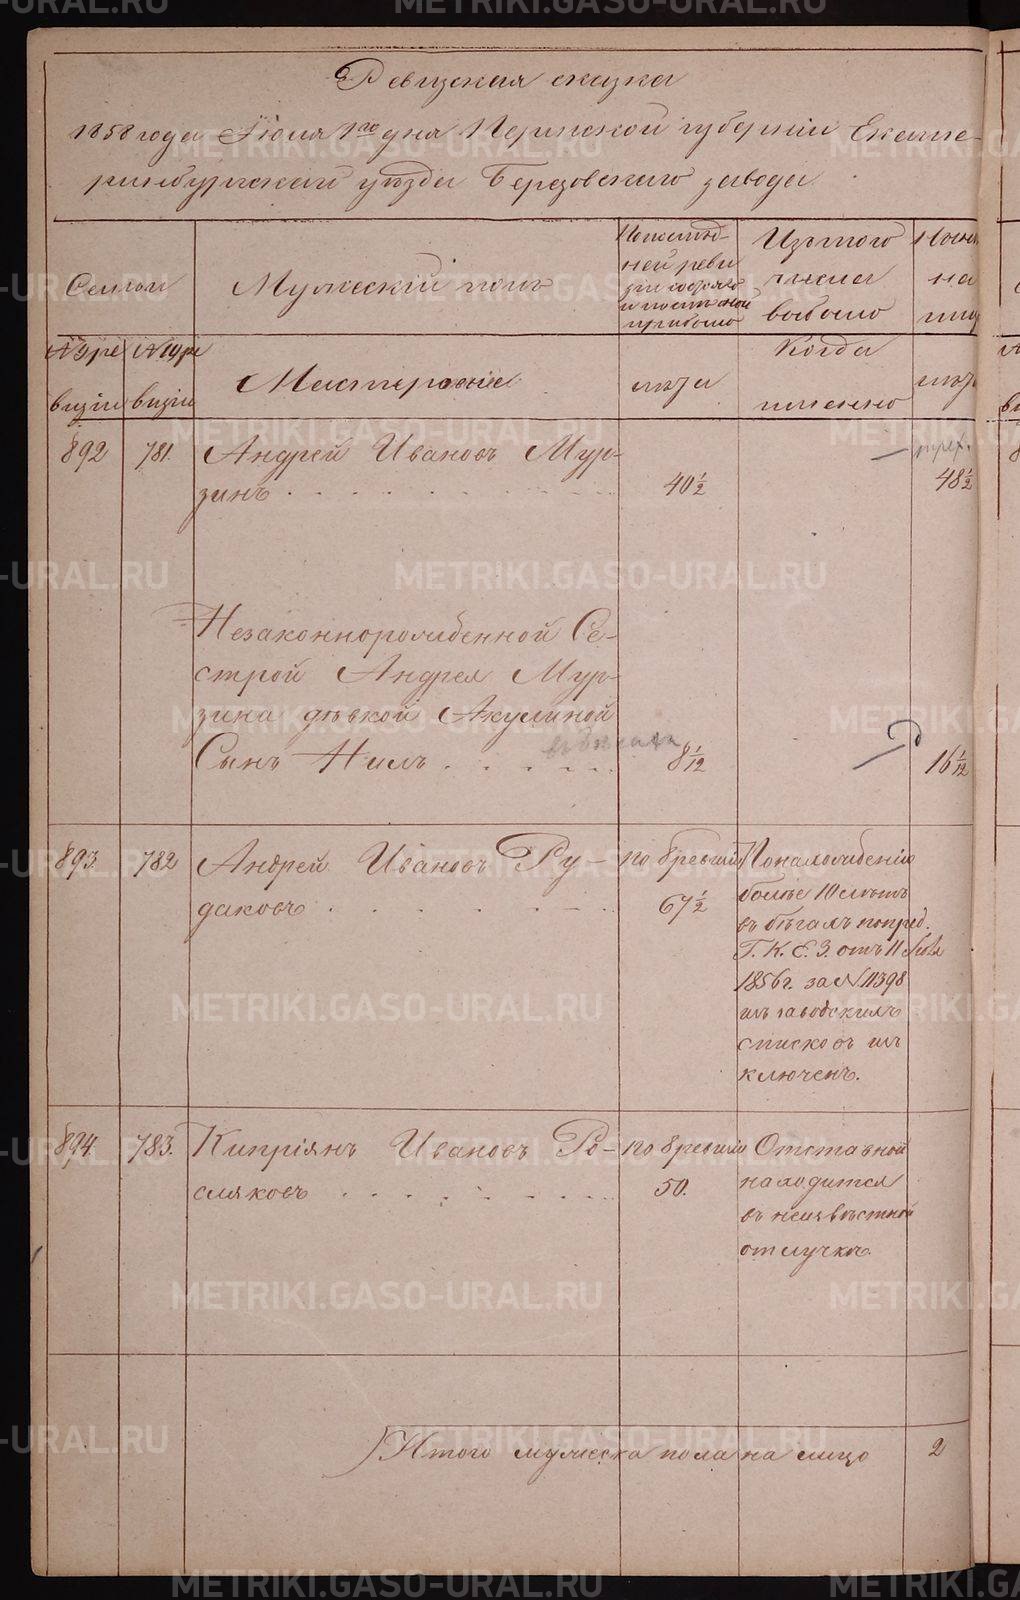 Ревизская сказка
1858 года Июля 1го дня Пермской губернiи Екате-
ринбургскаго уѣзда Березовскаго завода
Семьи
Мужескiй полъ
По послѣд-
ней реви
зiи состояло
и послѣ оной
прибыло
Изъ того
числа
выбыло
Ныне
на
лицо
№ 9 ре
визiи
№ 10 ре
визiи
Мастеровые
лѣта
Когда
именно
лѣта
892
781.
Андрей Ивановъ Мур-
зинъ
40 1/2
48 1/2
Незаконнорожденной Се-
строй Андрея Мур-
зина дѣвкой Акулиной
Сынъ Нилъ
8 1/12
16 1/12
893.
782
Андрей Ивановъ Ру-
даковъ
по 8 ревизiи
67 1/2
По нахожденiю
болѣе 10 лѣтъ
въ бѣгахъ по пред.
Г. К. Е. З. отъ 11 Ноя
1856 г. за № 11398
изъ заводскихъ
списковъ ис
ключенъ.
894.
783.
Кипрiянъ Ивановъ Ро-
сляковъ
по 8 ревизiи
50.
Отставной
находится
въ неизвѣстной
отлучкѣ.
Итого мужеска пола на лицо
2
METRIKI.GASO-URAL.RU